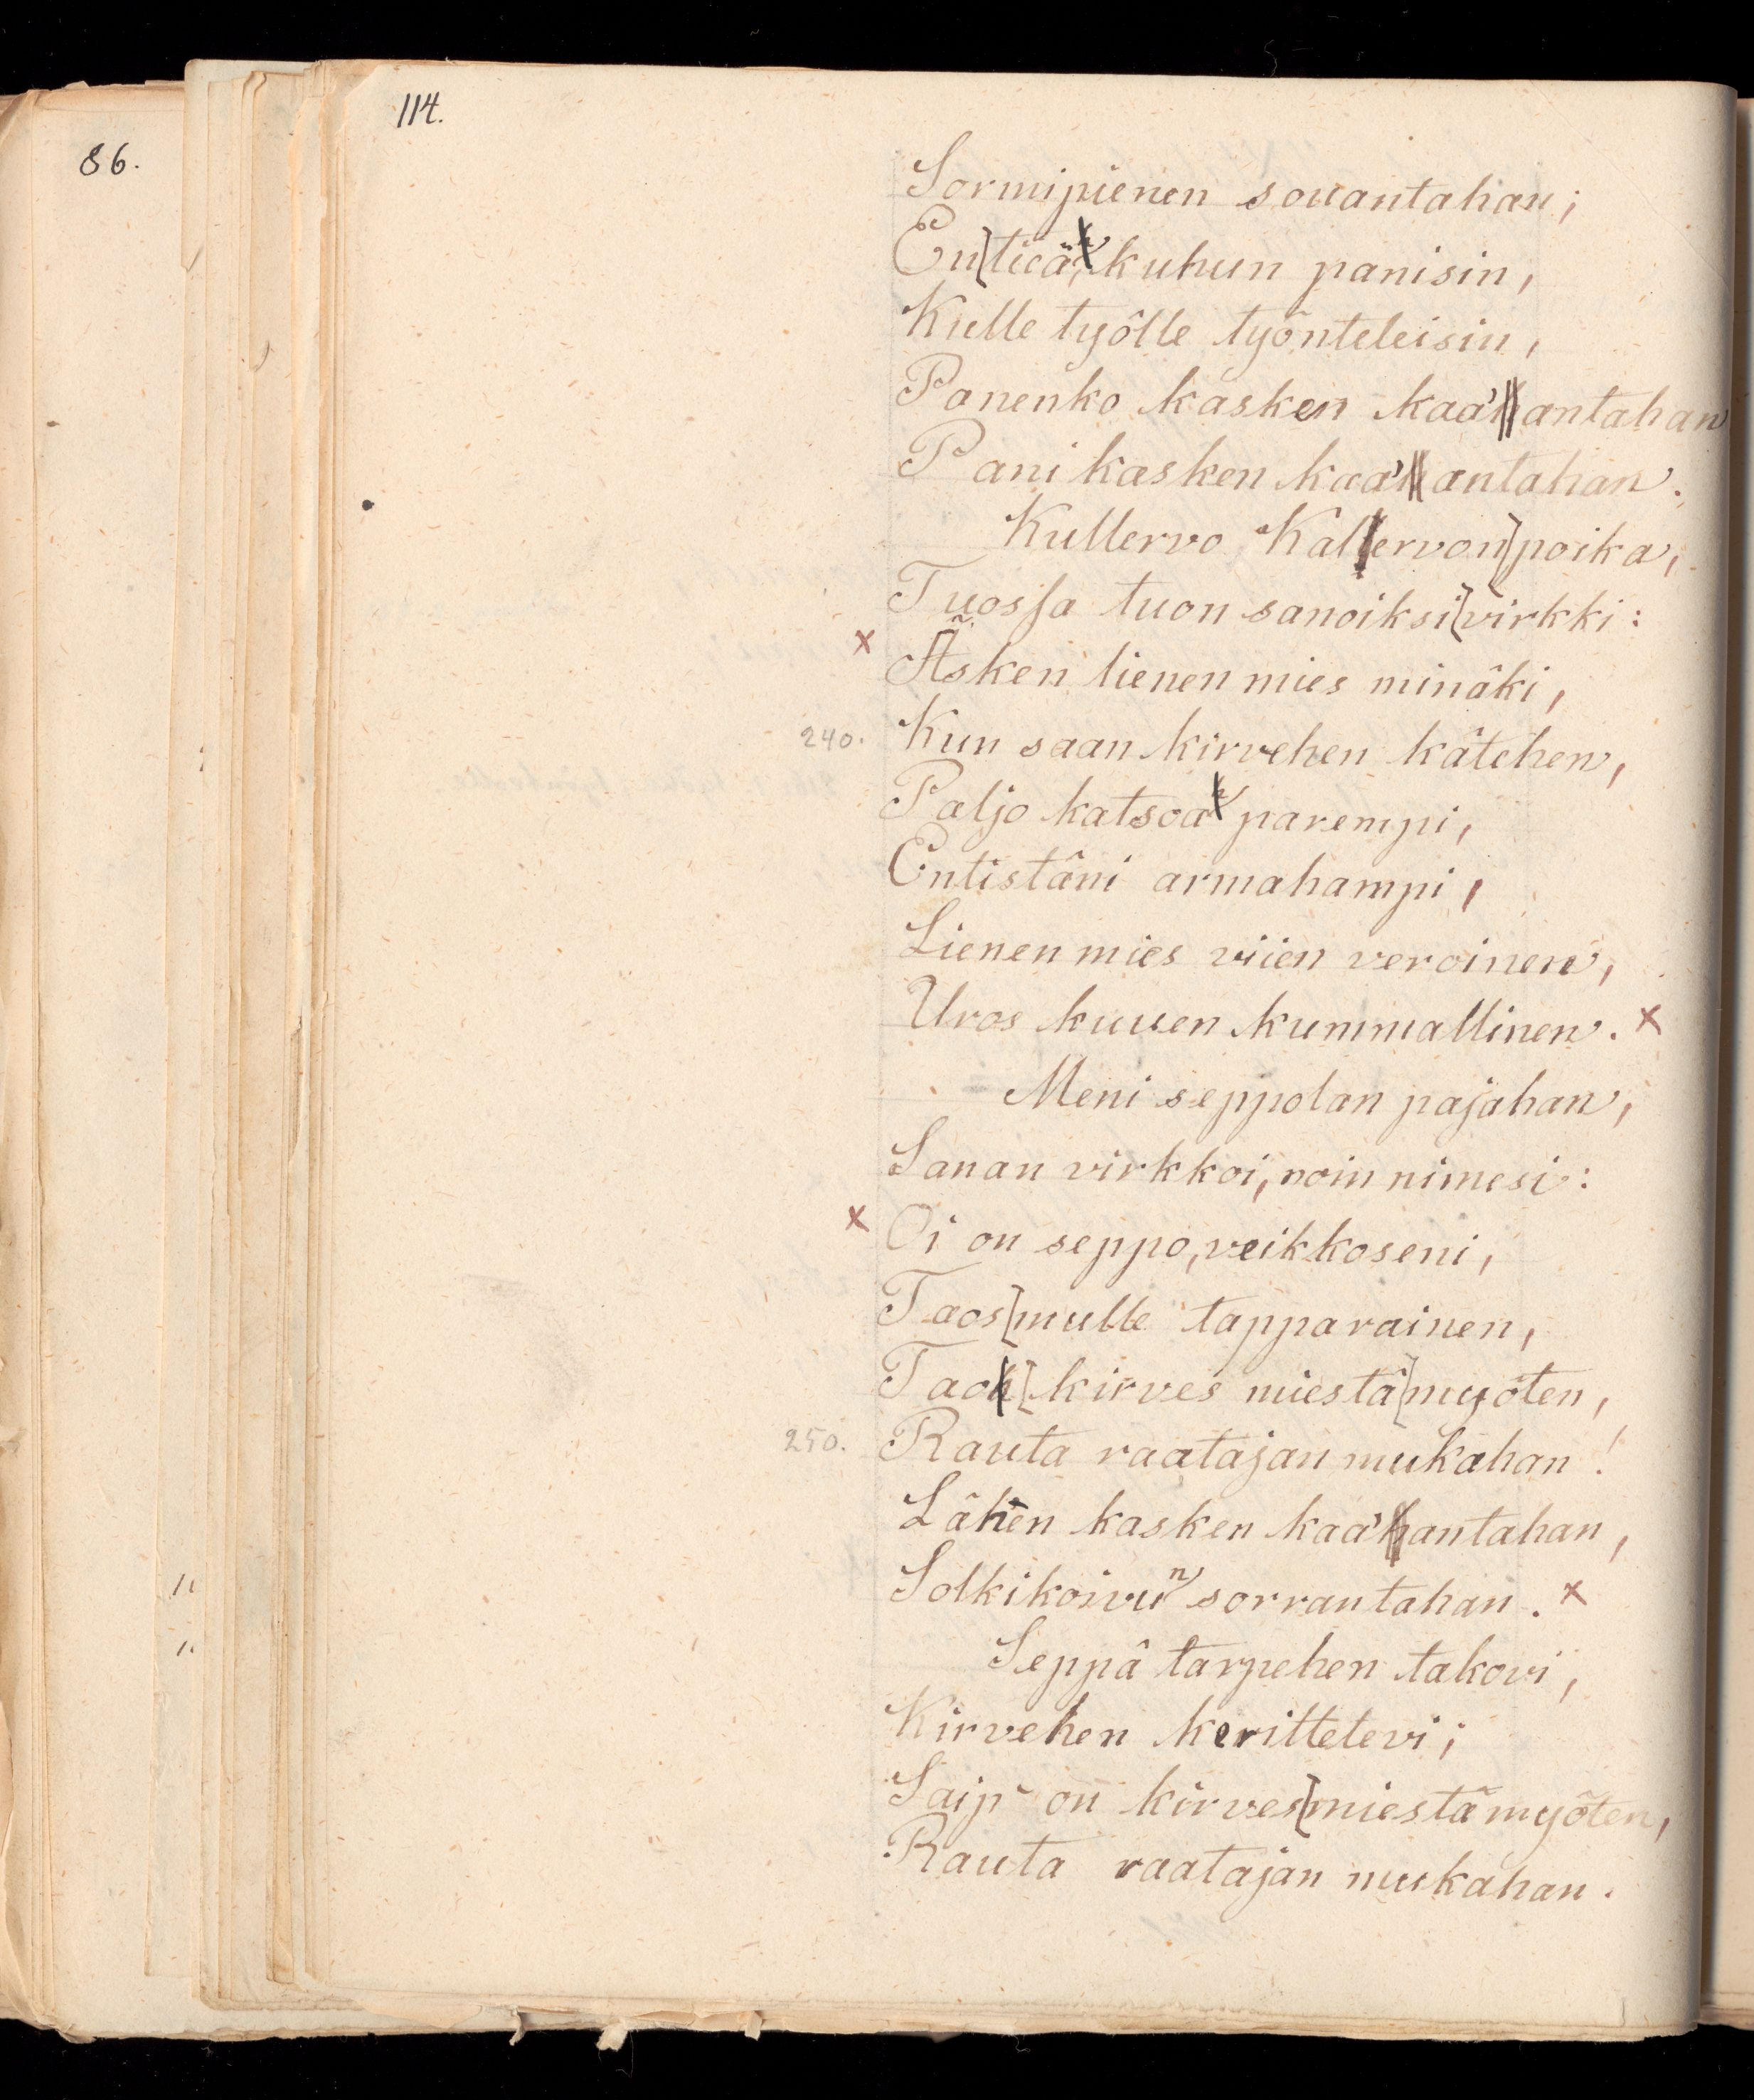 86.
114.
Sormipienen souantahan;
En tieä, kuhun panisin,
Kulle työlle työnteleisin,
Panenko kasken kaa'antahan
Pani kasken kaa'antahan.
Kullervo Kalervon poika,
Tuossa tuon sanoiksi virkki:
× Äsken lienen mies minäki,
240. Kun saan kirvehen kätehen,
Paljo katsoa parempi,
Entistäni armahampi,
Lienen mies viien veroinen,
Uros kuuen kummallinen. ×
Meni seppolan pajahan,
Sanan virkkoi, noin nimesi:
× Oi on seppo, veikkoseni,
Taos mulle tapparainen,
Tao kirves miestä myöten,
250. Rauta raatajan mukahan!
Lähen kasken kaa'antahan,
Solkikoivun sorrantahan. ×
Seppä tarpehen takovi,
Kirvehen kerittelevi;
Saip' on kirves miestä myöten,
Rauta raatajan mukahan.